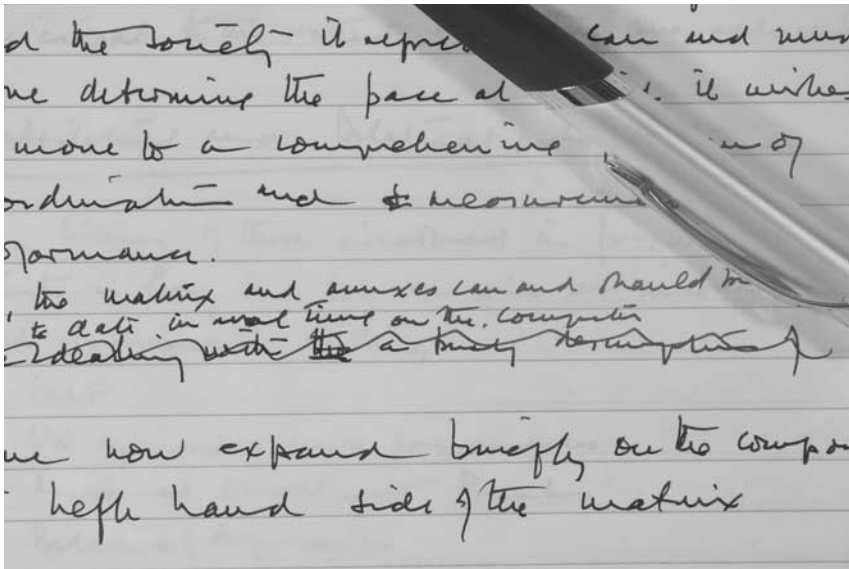 d the society it repre can and mus
me determining the pace at it wishes
move to a comprehensive of
ordination and measurem
formance.
the matrix and annexes can and should be
to date in real time on the computer
dealing with the a description of
me now expand briefly on the compon
left hand side of the matrix